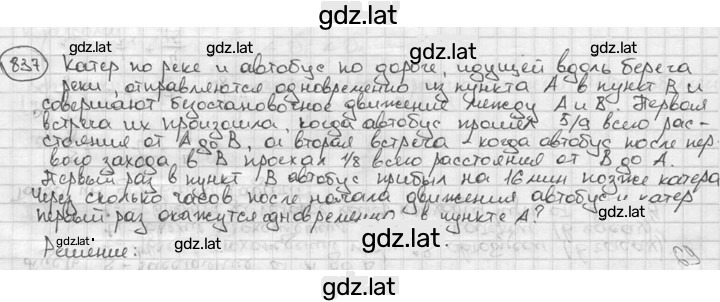 gdz.lat
837 Катер по реке и автобус по дороге, идущей вдоль берега
реки, отправляются одновременно из пункта А в пункт В и
совершают безостановочное движение между А и В. Первая
встреча их произошла, когда автобус прошёл 5/9 всего рас-
стояния от А до В, а вторая встреча - когда автобус после пер-
вого захода в В проехал 1/8 всего расстояния от В до А.
Первый раз в пункт В автобус прибыл на 16 мин позже катера
Через сколько часов после начала движения автобус и катер
первый раз окажутся одновременно в пункте А?
Решение:
69
gdz.lat
gdz.lat
gdz.lat
gdz.lat
gdz.lat
gdz.lat
gdz.lat
gdz.lat
gdz.lat
gdz.lat
gdz.lat
gdz.lat